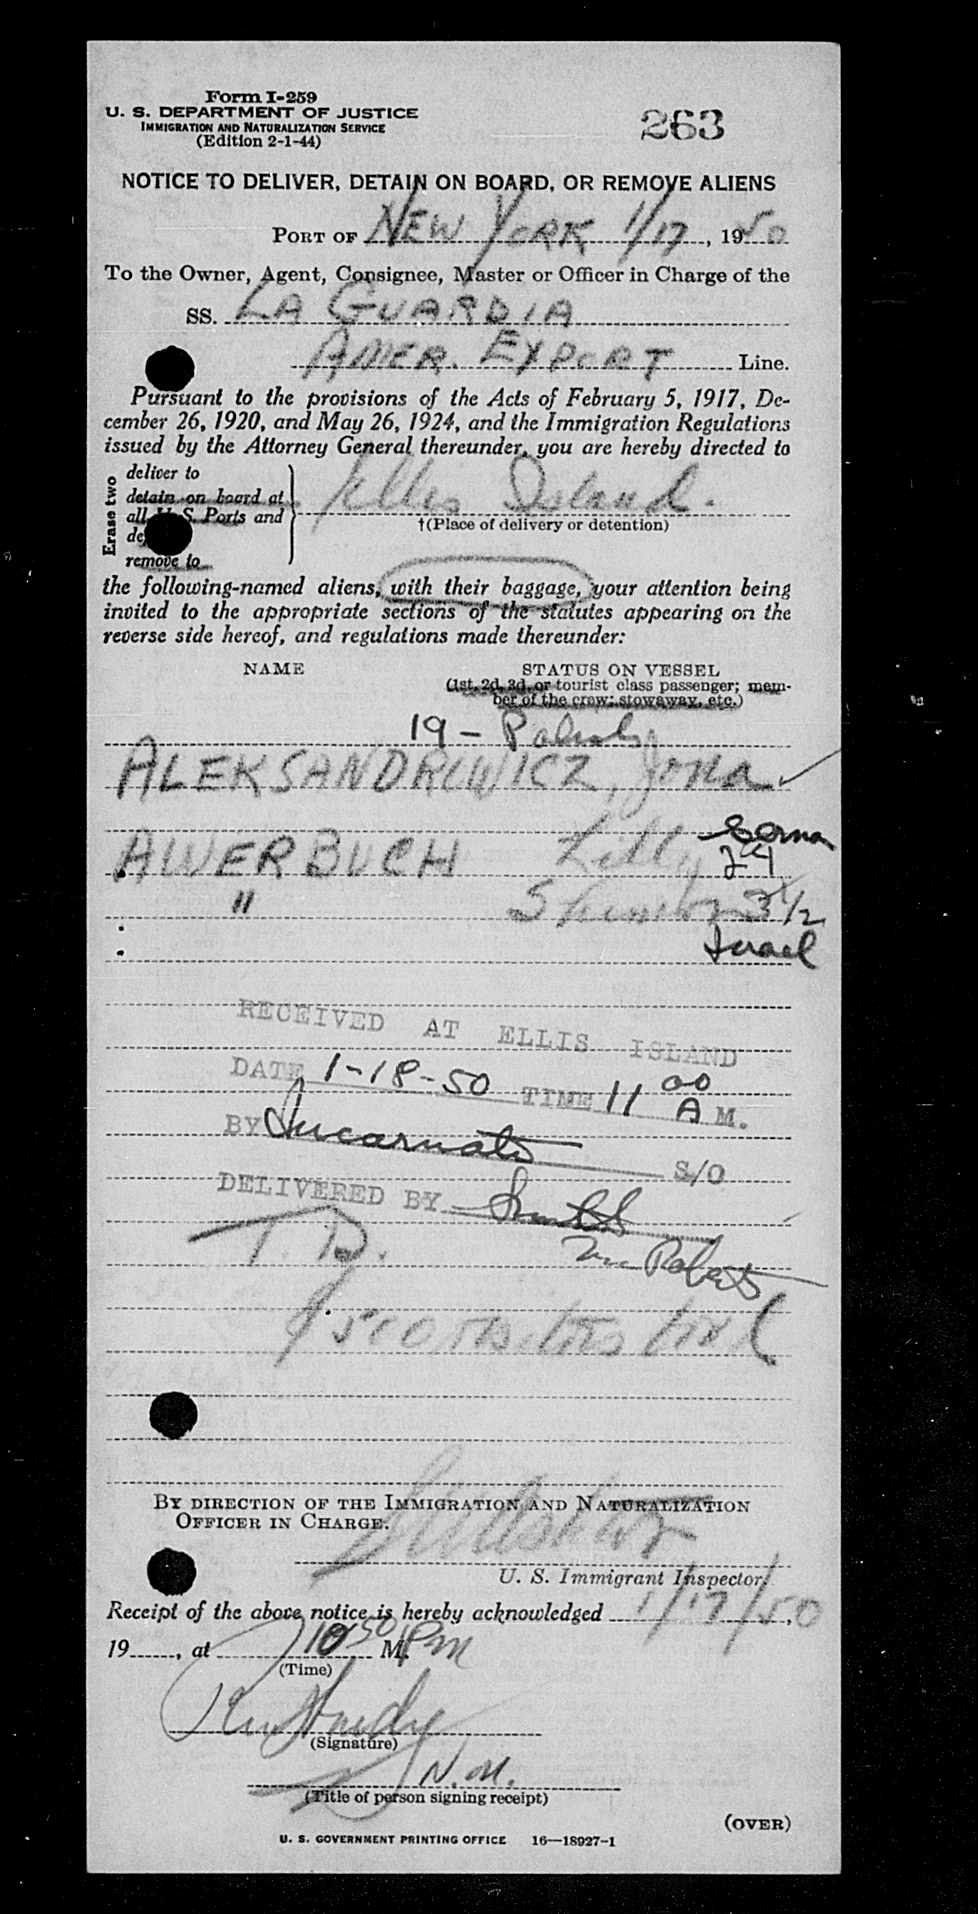 Form I-259
U. S. DEPARTMENT OF JUSTICE
IMMIGRATION AND NATURALIZATION SERVICE
(Edition 2-1-44)
263
NOTICE TO DELIVER, DETAIN ON BOARD, OR REMOVE ALIENS
PORT OF NEW YORK 1/17, 1950
To the Owner, Agent, Consignee, Master or Officer in Charge of the
SS. LA GUARDIA
AMER. EXPORT Line.
Pursuant to the provisions of the Acts of February 5, 1917, De-
cember 26, 1920, and May 26, 1924, and the Immigration Regulations
issued by the Attorney General thereunder, you are hereby directed to
Erase two
deliver to
detain on board at
all U.S. Ports and
de
remove to
Ellis Island.
†(Place of delivery or detention)
the following-named aliens, with their baggage, your attention being
invited to the appropriate sections of the statutes appearing on the
reverse side hereof, and regulations made thereunder:
NAME STATUS ON VESSEL
(1st, 2d, 3d, or tourist class passenger; mem-
ber of the crew; stowaway, etc.)
19 -
ALEKSANDROWICZ, Jona
AWERBUCH Lilly
" 3 1/2
Israel
RECEIVED AT ELLIS ISLAND
DATE 1-18-50 TIME 11 00 A M.
BY Incarnato S/O
DELIVERED BY
Wm Roberts
T. D.
BY DIRECTION OF THE IMMIGRATION AND NATURALIZATION
OFFICER IN CHARGE.
U. S. Immigrant Inspector.
Receipt of the above notice is hereby acknowledged 1/17/50,
19, at 10 30 M. PM
(Time)
(Signature)
N. M.
(Title of person signing receipt)
(OVER)
U. S. GOVERNMENT PRINTING OFFICE 16—18927-1